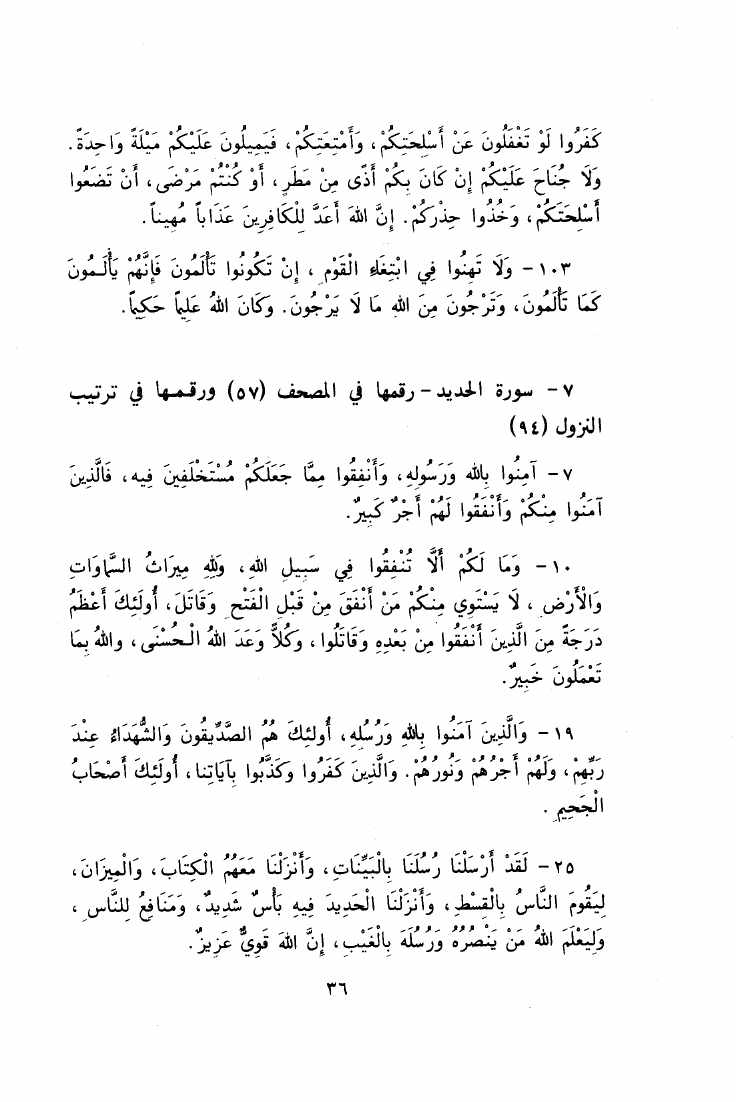 كَفَرُوا لَوْ تَغْفَلُونَ عَنْ أَسْلِحَتِكُمْ، وَأَمْتِعَتِكُمْ، فَيَمِيلُونَ عَلَيْكُمْ مَيْلَةً وَاحِدَةً.
وَلَا جُنَاحَ عَلَيْكُمْ إِنْ كَانَ بِكُمْ أَذًى مِنْ مَطَرٍ، أَوْ كُنْتُمْ مَرْضَى، أَنْ تَضَعُوا
أَسْلِحَتَكُمْ، وَخُذُوا حِذْرَكُمْ. إِنَّ اللهَ أَعَدَّ لِلْكَافِرِينَ عَذَاباً مُهِيناً.
١٠٣ - وَلَا تَهِنُوا فِي ابْتِغَاءِ الْقَوْمِ، إِنْ تَكُونُوا تَأْلَمُونَ فَإِنَّهُمْ يَأْلَمُونَ
كَمَا تَأْلَمُونَ، وَتَرْجُونَ مِنَ اللهِ مَا لَا يَرْجُونَ. وَكَانَ اللهُ عَلِيماً حَكِيماً.
٧ - سورة الحديد - رقمها في المصحف (٥٧) ورقمها في ترتيب
النزول (٩٤)
٧ - آمِنُوا بِاللهِ وَرَسُولِهِ، وَأَنْفِقُوا مِمَّا جَعَلَكُمْ مُسْتَخْلَفِينَ فِيه، فَالَّذِينَ
آمَنُوا مِنْكُمْ وَأَنْفَقُوا لَهُمْ أَجْرٌ كَبِيرٌ.
١٠ - وَمَا لَكُمْ أَلَّا تُنْفِقُوا فِي سَبِيلِ اللهِ، وَلِلهِ مِيرَاثُ السَّمَاوَاتِ
وَالْأَرْضِ، لَا يَسْتَوِي مِنْكُمْ مَنْ أَنْفَقَ مِنْ قَبْلِ الْفَتْحِ وَقَاتَلَ، أُولَئِكَ أَعْظَمُ
دَرَجَةً مِنَ الَّذِينَ أَنْفَقُوا مِنْ بَعْدِهِ وَقَاتَلُوا، وَكُلاًّ وَعَدَ اللهُ الْحُسْنَى، واللهُ بِمَا
تَعْمَلُونَ خَبِيرٌ.
١٩ - وَالَّذِينَ آمَنُوا بِاللهِ وَرُسُلِهِ، أُولَئِكَ هُمُ الصَّدِّيقُونَ وَالشُّهَدَاءُ عِنْدَ
رَبِّهِمْ، وَلَهُمْ أَجْرُهُمْ وَنُورُهُمْ. وَالَّذِينَ كَفَرُوا وَكَذَّبُوا بِآيَاتِنا، أُولَئِكَ أَصْحَابُ
الْجَحِيمِ.
٢٥ - لَقَدْ أَرْسَلْنَا رُسُلَنَا بِالْبَيِّنَاتِ، وَأَنْزَلْنَا مَعَهُمُ الْكِتَابَ، وَالْمِيزَانَ،
لِيَقُومَ النَّاسُ بِالْقِسْطِ، وَأَنْزَلْنَا الْحَدِيدَ فِيهِ بَأْسٌ شَدِيدٌ، وَمَنَافِعُ لِلنَّاسِ،
وَلِيَعْلَمَ اللهُ مَنْ يَنْصُرُهُ وَرُسُلَهُ بِالْغَيْبِ، إِنَّ اللهَ قَوِيٌّ عَزِيزٌ.
٣٦